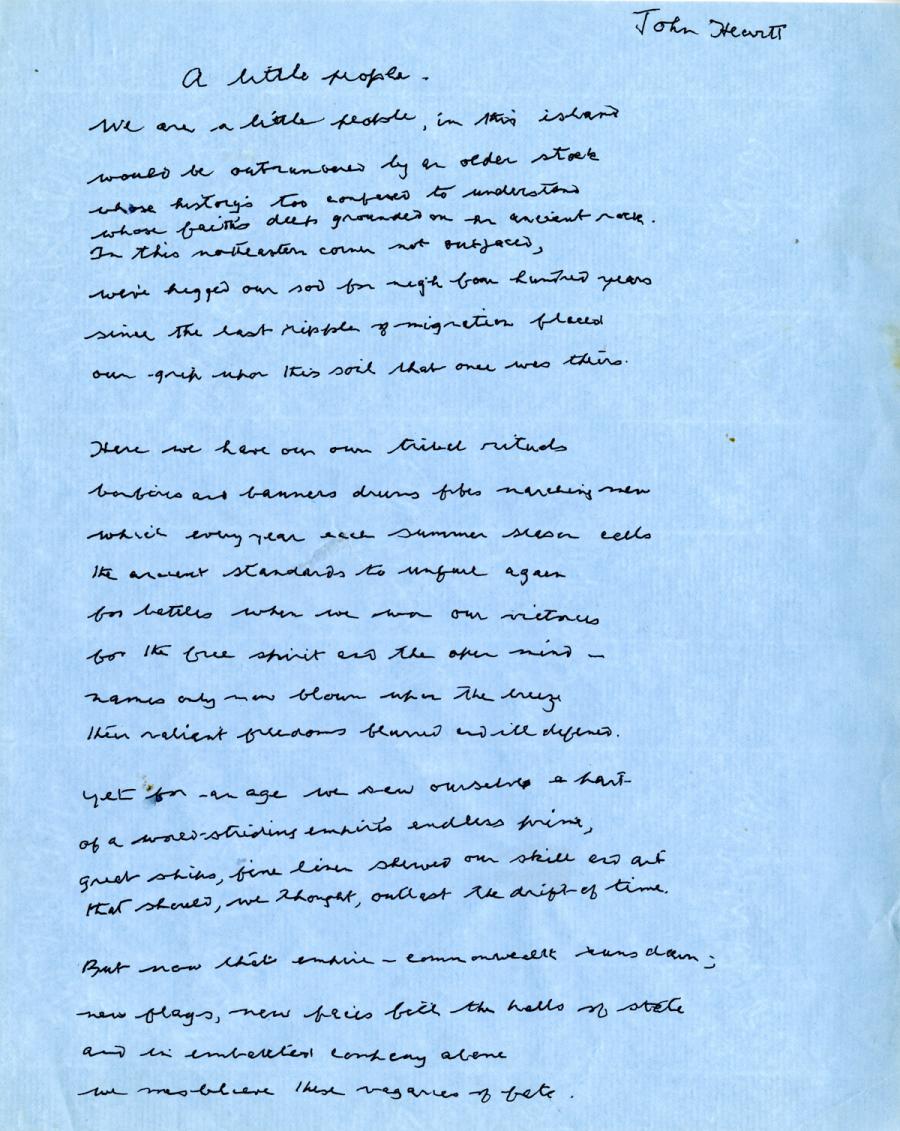 John Hewitt
A little people.
We are a little people, in this island
would be outnumbered by an older stock
whose history's too confused to understand
whose faith's deep grounded on an ancient rock.
In this northeastern corner not outfaced,
we've hugged our sod for nigh four hundred years
since the last ripple of migration placed
our grip upon this soil that once was theirs.
Here we have our own tribal rituals
bonfires and banners drums fifes marching men
which every year each summer season calls
the ancient standards to unfurl again
for battles when we won our victories
for the free spirit and the open mind —
names only now blown upon the breeze
their valiant freedoms blurred and ill defined.
Yet for an age we saw ourselves a part
of a world-striding empire's endless prime,
great ships, fine linen showed our skill and art
that should, we thought, outlast the drift of time.
But now that empire – commonwealth runs down;
new flags, new faces fill the halls of state
and in embattled company alone
we these vagaries of fate.